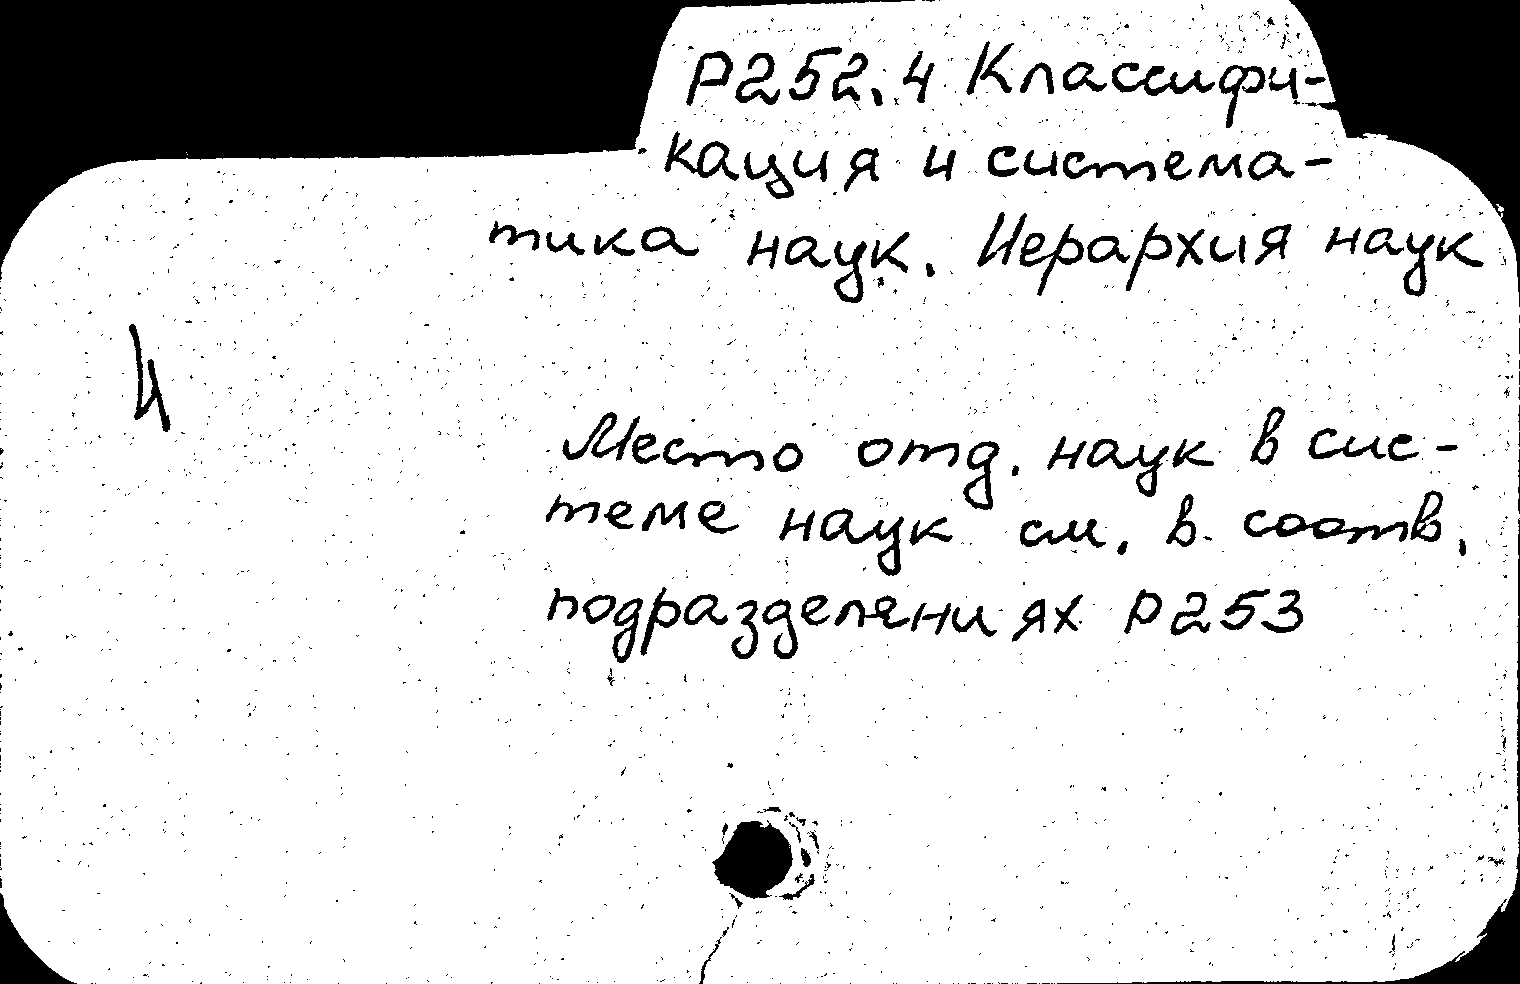 Р252.4 Классифи-
кация и система-
тика наук. Иерархия наук
Место отд. наук в сис-
теме наук см. в соотв.
подразделениях Р253